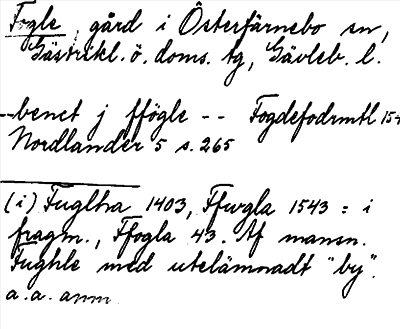 Fogle, gård i Österfärnebo sn,
Gästrikl. ö. doms. tg, Gävleb. l.
--benct j ffögle -- Fogdefodrmtl 154
Nordlander 5 s. 265
(i) Fuglha 1403, Ffwgla 1543 : i
fragm., Ffogla 43. Af mansn.
Fughle med utelämnadt "by".
a.a. anm.